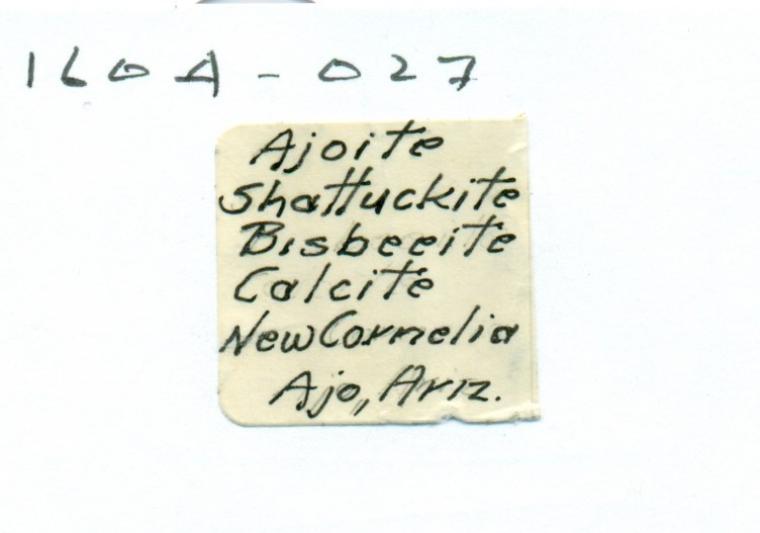 160A-027
Ajoite
Shattuckite
Bisbeeite
Calcite
New Cornelia
Ajo, Ariz.